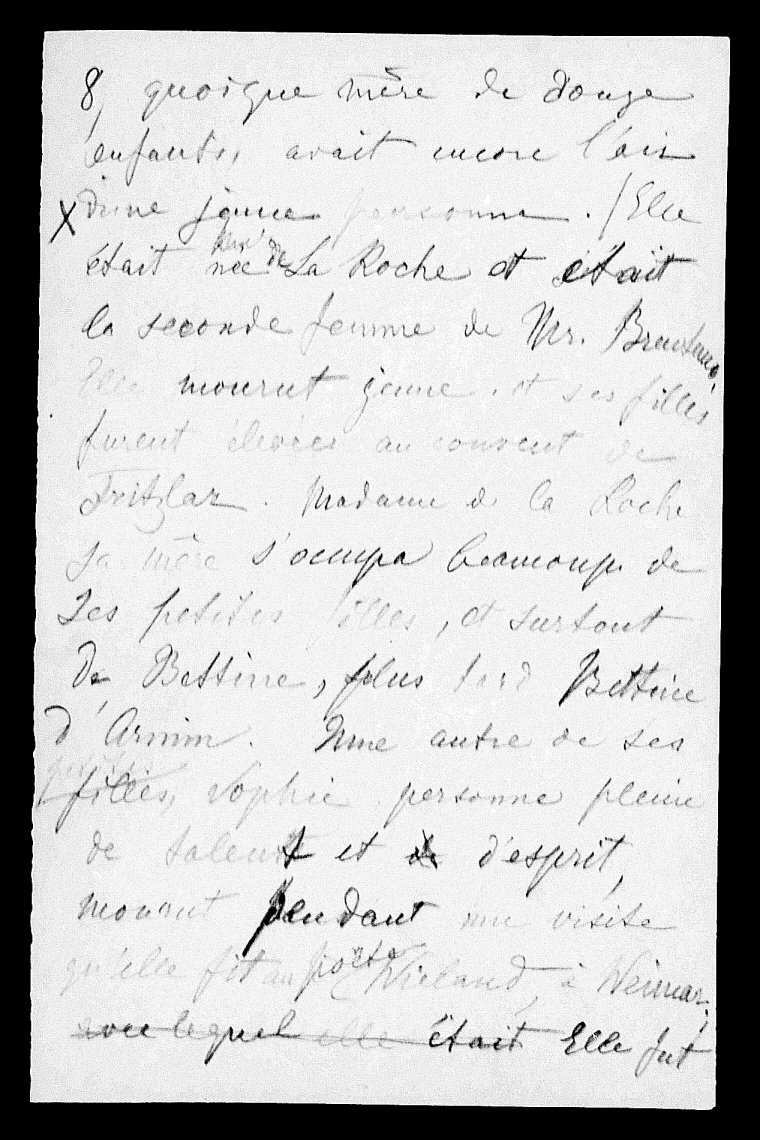 8, quoique mère de douze
enfants, avait encore l'air
X d'une jeune personne. / Elle
était née de La Roche et était
la seconde femme de Mr. Brentano,
Elle mourut jeune, et ses filles
furent élevées au couvent de
Fritzlar. Madame de la Roche
sa mère s'occupa beaucoup de
ses petites filles, et surtout
de Bettine, plus tard Bettine
d'Arnim. Une autre de ses
petites
filles, Sophie, personne pleine
de talent et de d'esprit,
mourut pendant une visite
qu'elle fit au poète Wieland, à Weimar,
avec lequel elle était Elle fut